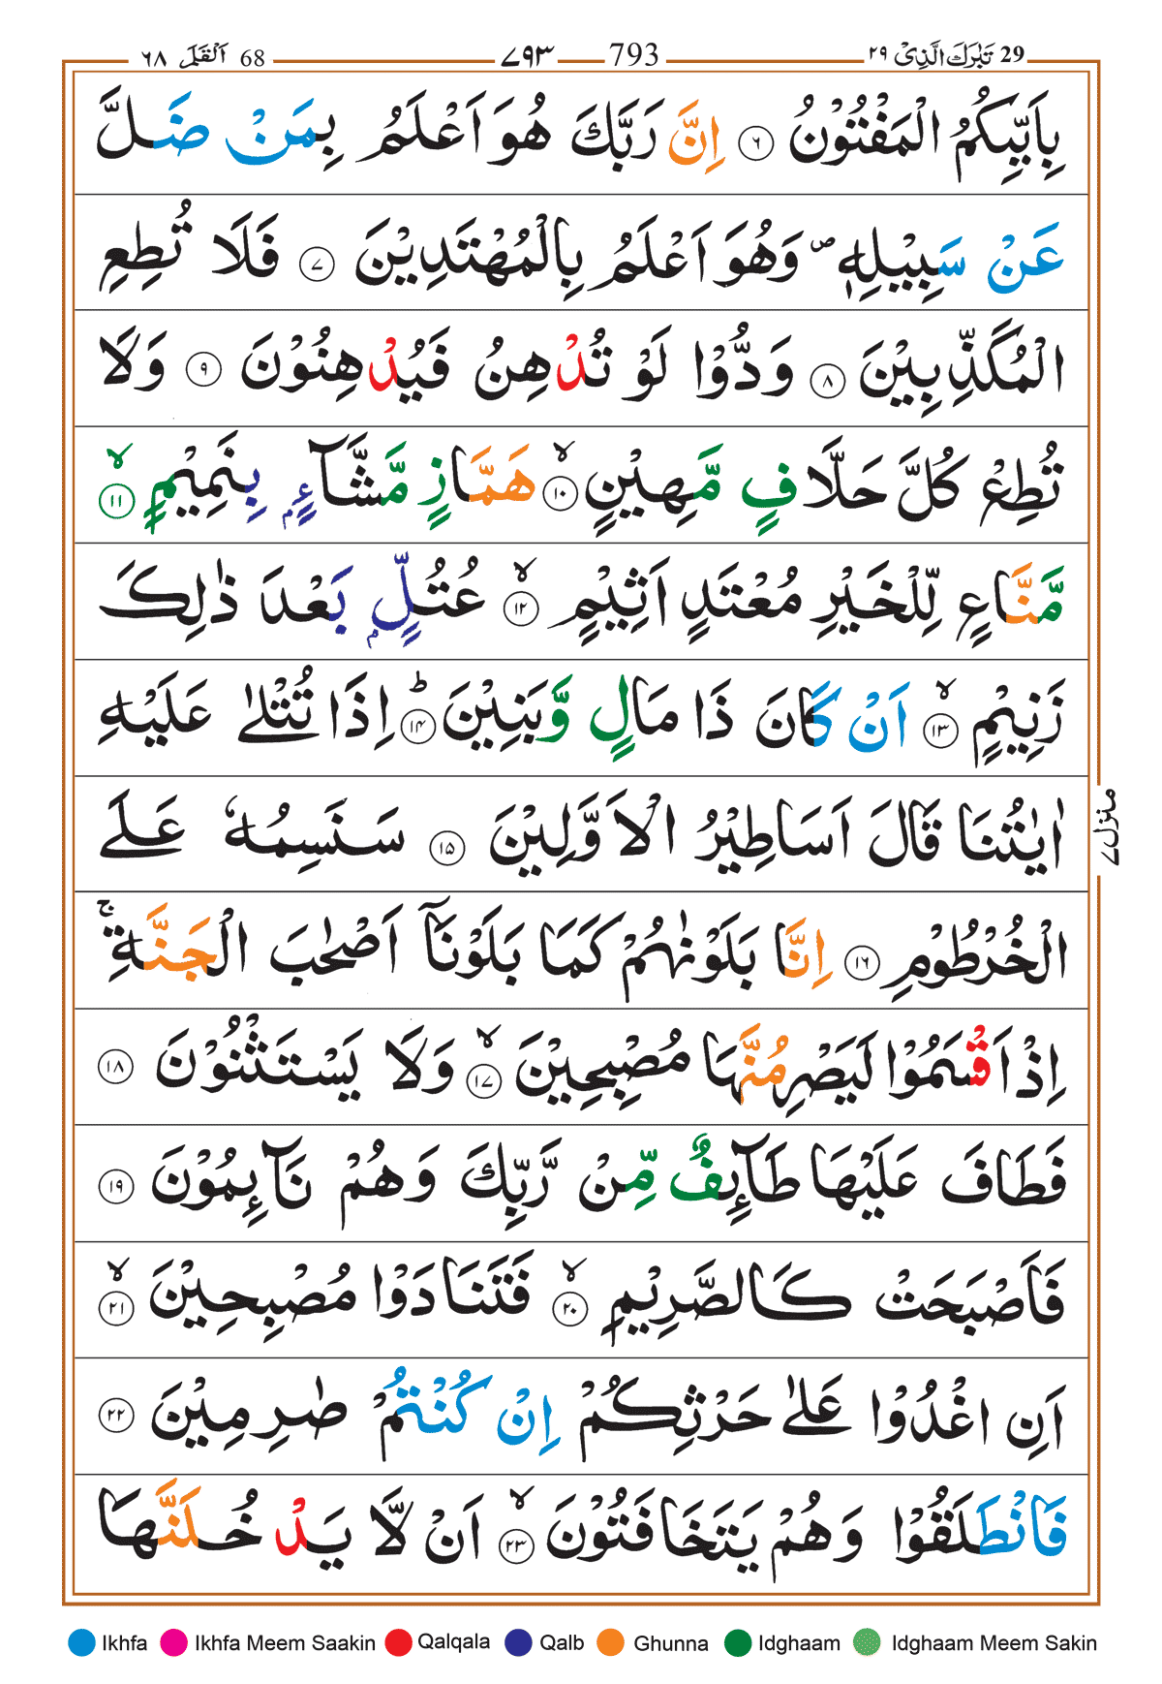 29 تَبٰرَكَ الَّذِیْ ۲۹ 793 ۷۹۳ 68 اَلْقَلَمِ ۶۸
بِاَیِّىكُمُ الْمَفْتُوْنُ ۶ اِنَّ رَبَّكَ هُوَ اَعْلَمُ بِمَنْ ضَلَّ
عَنْ سَبِیْلِهٖ ۪ وَهُوَ اَعْلَمُ بِالْمُهْتَدِیْنَ ۷ فَلَا تُطِعِ
الْمُكَذِّبِیْنَ ۸ وَدُّوْا لَوْ تُدْهِنُ فَیُدْهِنُوْنَ ۹ وَلَا
تُطِعْ كُلَّ حَلَّافٍ مَّهِیْنٍ ۙ۱۰ هَمَّازٍ مَّشَّآءٍۭ بِنَمِیْمٍ ۙ۱۱
مَّنَّاعٍ لِّلْخَیْرِ مُعْتَدٍ اَثِیْمٍ ۙ۱۲ عُتُلٍّۭ بَعْدَ ذٰلِكَ
زَنِیْمٍ ۙ۱۳ اَنْ كَانَ ذَا مَالٍ وَّبَنِیْنَ ؕ۱۴ اِذَا تُتْلٰی عَلَیْهِ
اٰیٰتُنَا قَالَ اَسَاطِیْرُ الْاَوَّلِیْنَ ۱۵ سَنَسِمُهٗ عَلَی
الْخُرْطُوْمِ ۱۶ اِنَّا بَلَوْنٰهُمْ كَمَا بَلَوْنَآ اَصْحٰبَ الْجَنَّةِ ۚ
اِذْ اَقْسَمُوْا لَیَصْرِمُنَّهَا مُصْبِحِیْنَ ۙ۱۷ وَلَا یَسْتَثْنُوْنَ ۱۸
فَطَافَ عَلَیْهَا طَآىِٕفٌ مِّنْ رَّبِّكَ وَهُمْ نَآىِٕمُوْنَ ۱۹
فَاَصْبَحَتْ كَالصَّرِیْمِ ۙ۲۰ فَتَنَادَوْا مُصْبِحِیْنَ ۙ۲۱
اَنِ اغْدُوْا عَلٰی حَرْثِكُمْ اِنْ كُنْتُمْ صٰرِمِیْنَ ۲۲
فَانْطَلَقُوْا وَهُمْ یَتَخَافَتُوْنَ ۙ۲۳ اَنْ لَّا یَدْخُلَنَّهَا
منزل ۷
Ikhfa Ikhfa Meem Saakin Qalqala Qalb Ghunna Idghaam Idghaam Meem Sakin